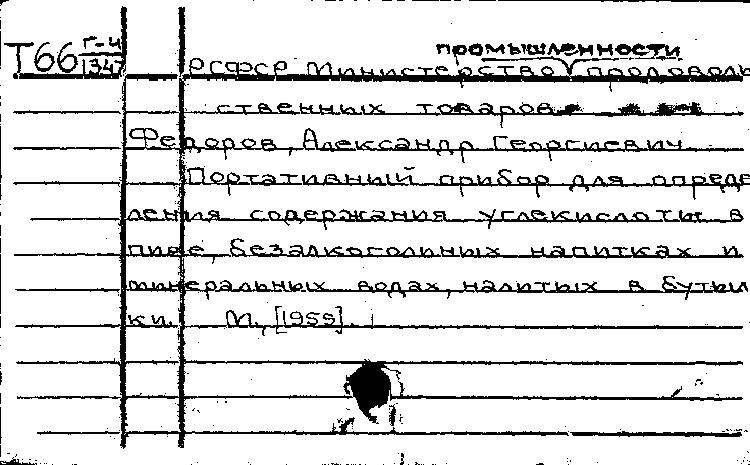 промышленности
Т66 Г-4
1347
РСФСР Министерство продоволь
ственных товаров
Федоров, Александр Георгиевич
Портативный прибор для опреде
ления содержания углекислоты в
пиве, безалкогольных напитках и
минеральных водах, налитых в бутыл
ки. М., [1959].